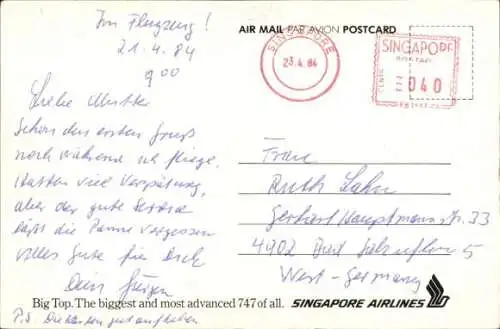 Im Flugzeug!
21.4.84
9 00
Liebe Mutter
Schon den ersten Gruss
noch während ich fliege.
Hatten viel Verspätung,
aber der gute Service
lässt die Panne vergessen
alles Gute für Dich
Dein Jürgen
P.S Die Karten gut aufheben
AIR MAIL PAR AVION POSTCARD
SINGAPORE
23.4.84
SINGAPO
CENTS
040
Frau
Ruth Hahn
Gerhart Hauptmann str. 33
4902 Bad Salzuflen 5
West-Germany
Big Top. The biggest and most advanced 747 of all.
SINGAPORE AIRLINES